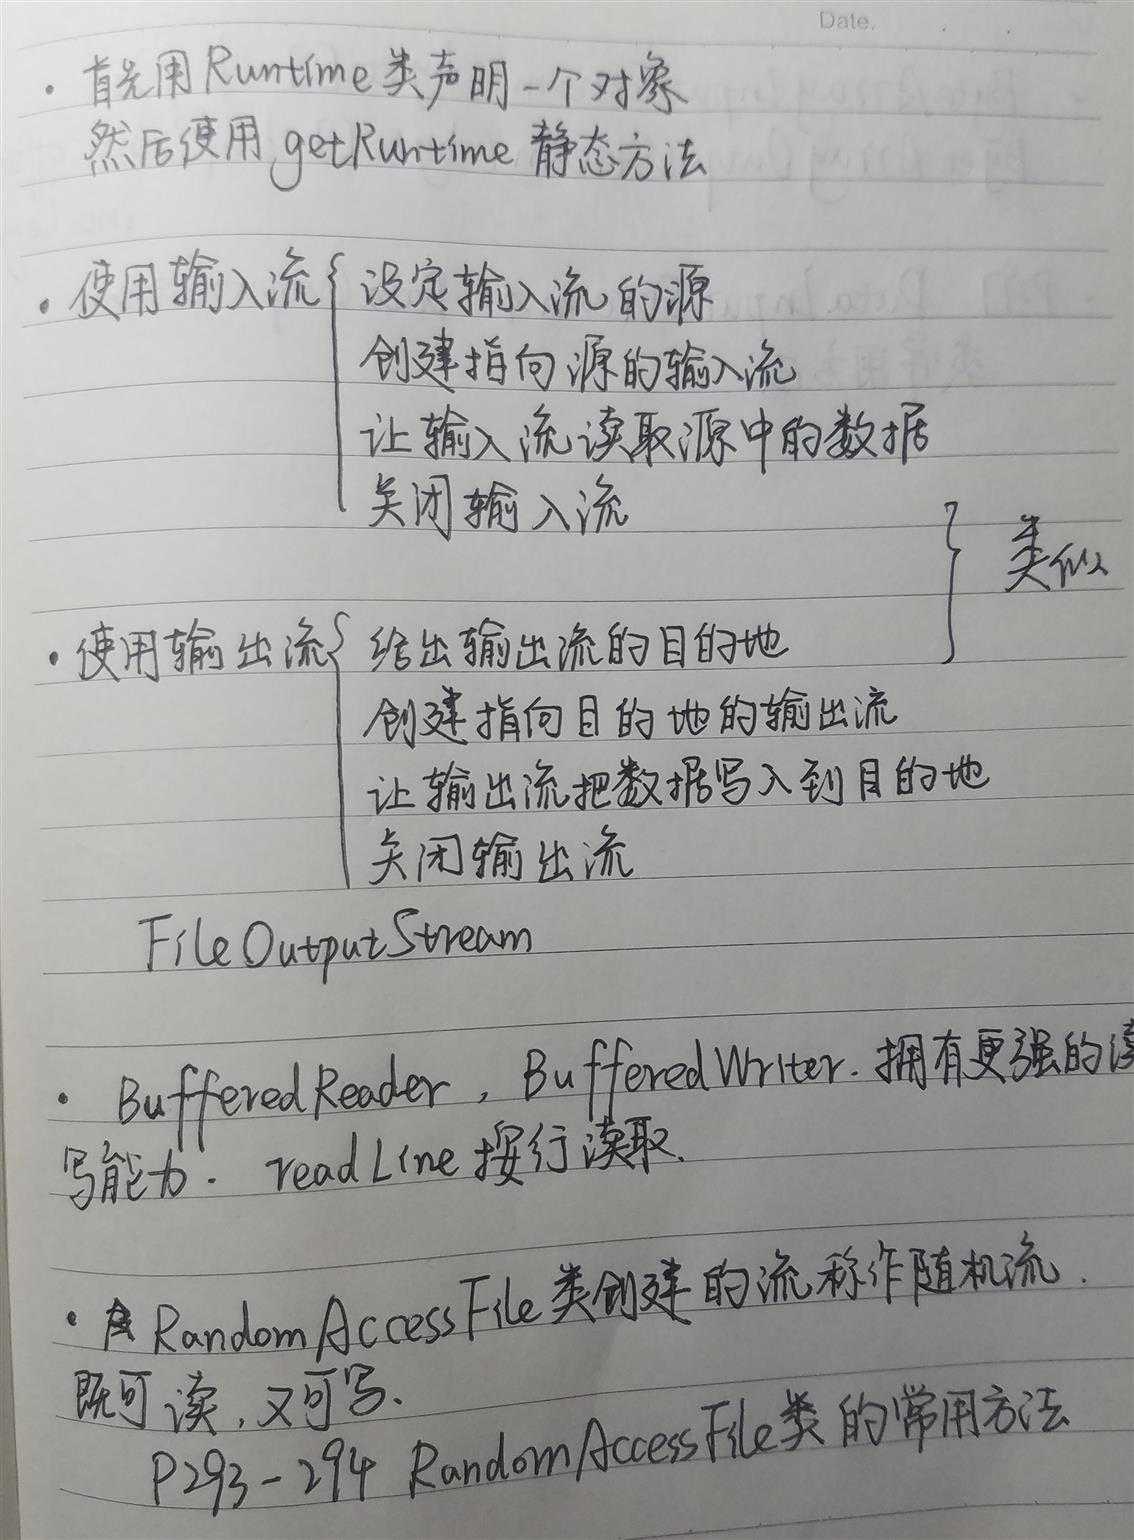 Date.
· 首先用Runtime类声明一个对象
然后使用getRuntime静态方法
· 使用输入流{ 设定输入流的源
创建指向源的输入流
让输入流读取源中的数据
关闭输入流
} 类似
· 使用输出流{ 给出输出流的目的地
创建指向目的地的输出流
让输出流把数据写入到目的地
关闭输出流
FileOutputStream
· BufferedReader, BufferedWriter. 拥有更强的读
写能力. readLine按行读取.
· RandomAccessFile类创建的流称作随机流.
既可读,又可写.
P293-294 RandomAccessFile类的常用方法